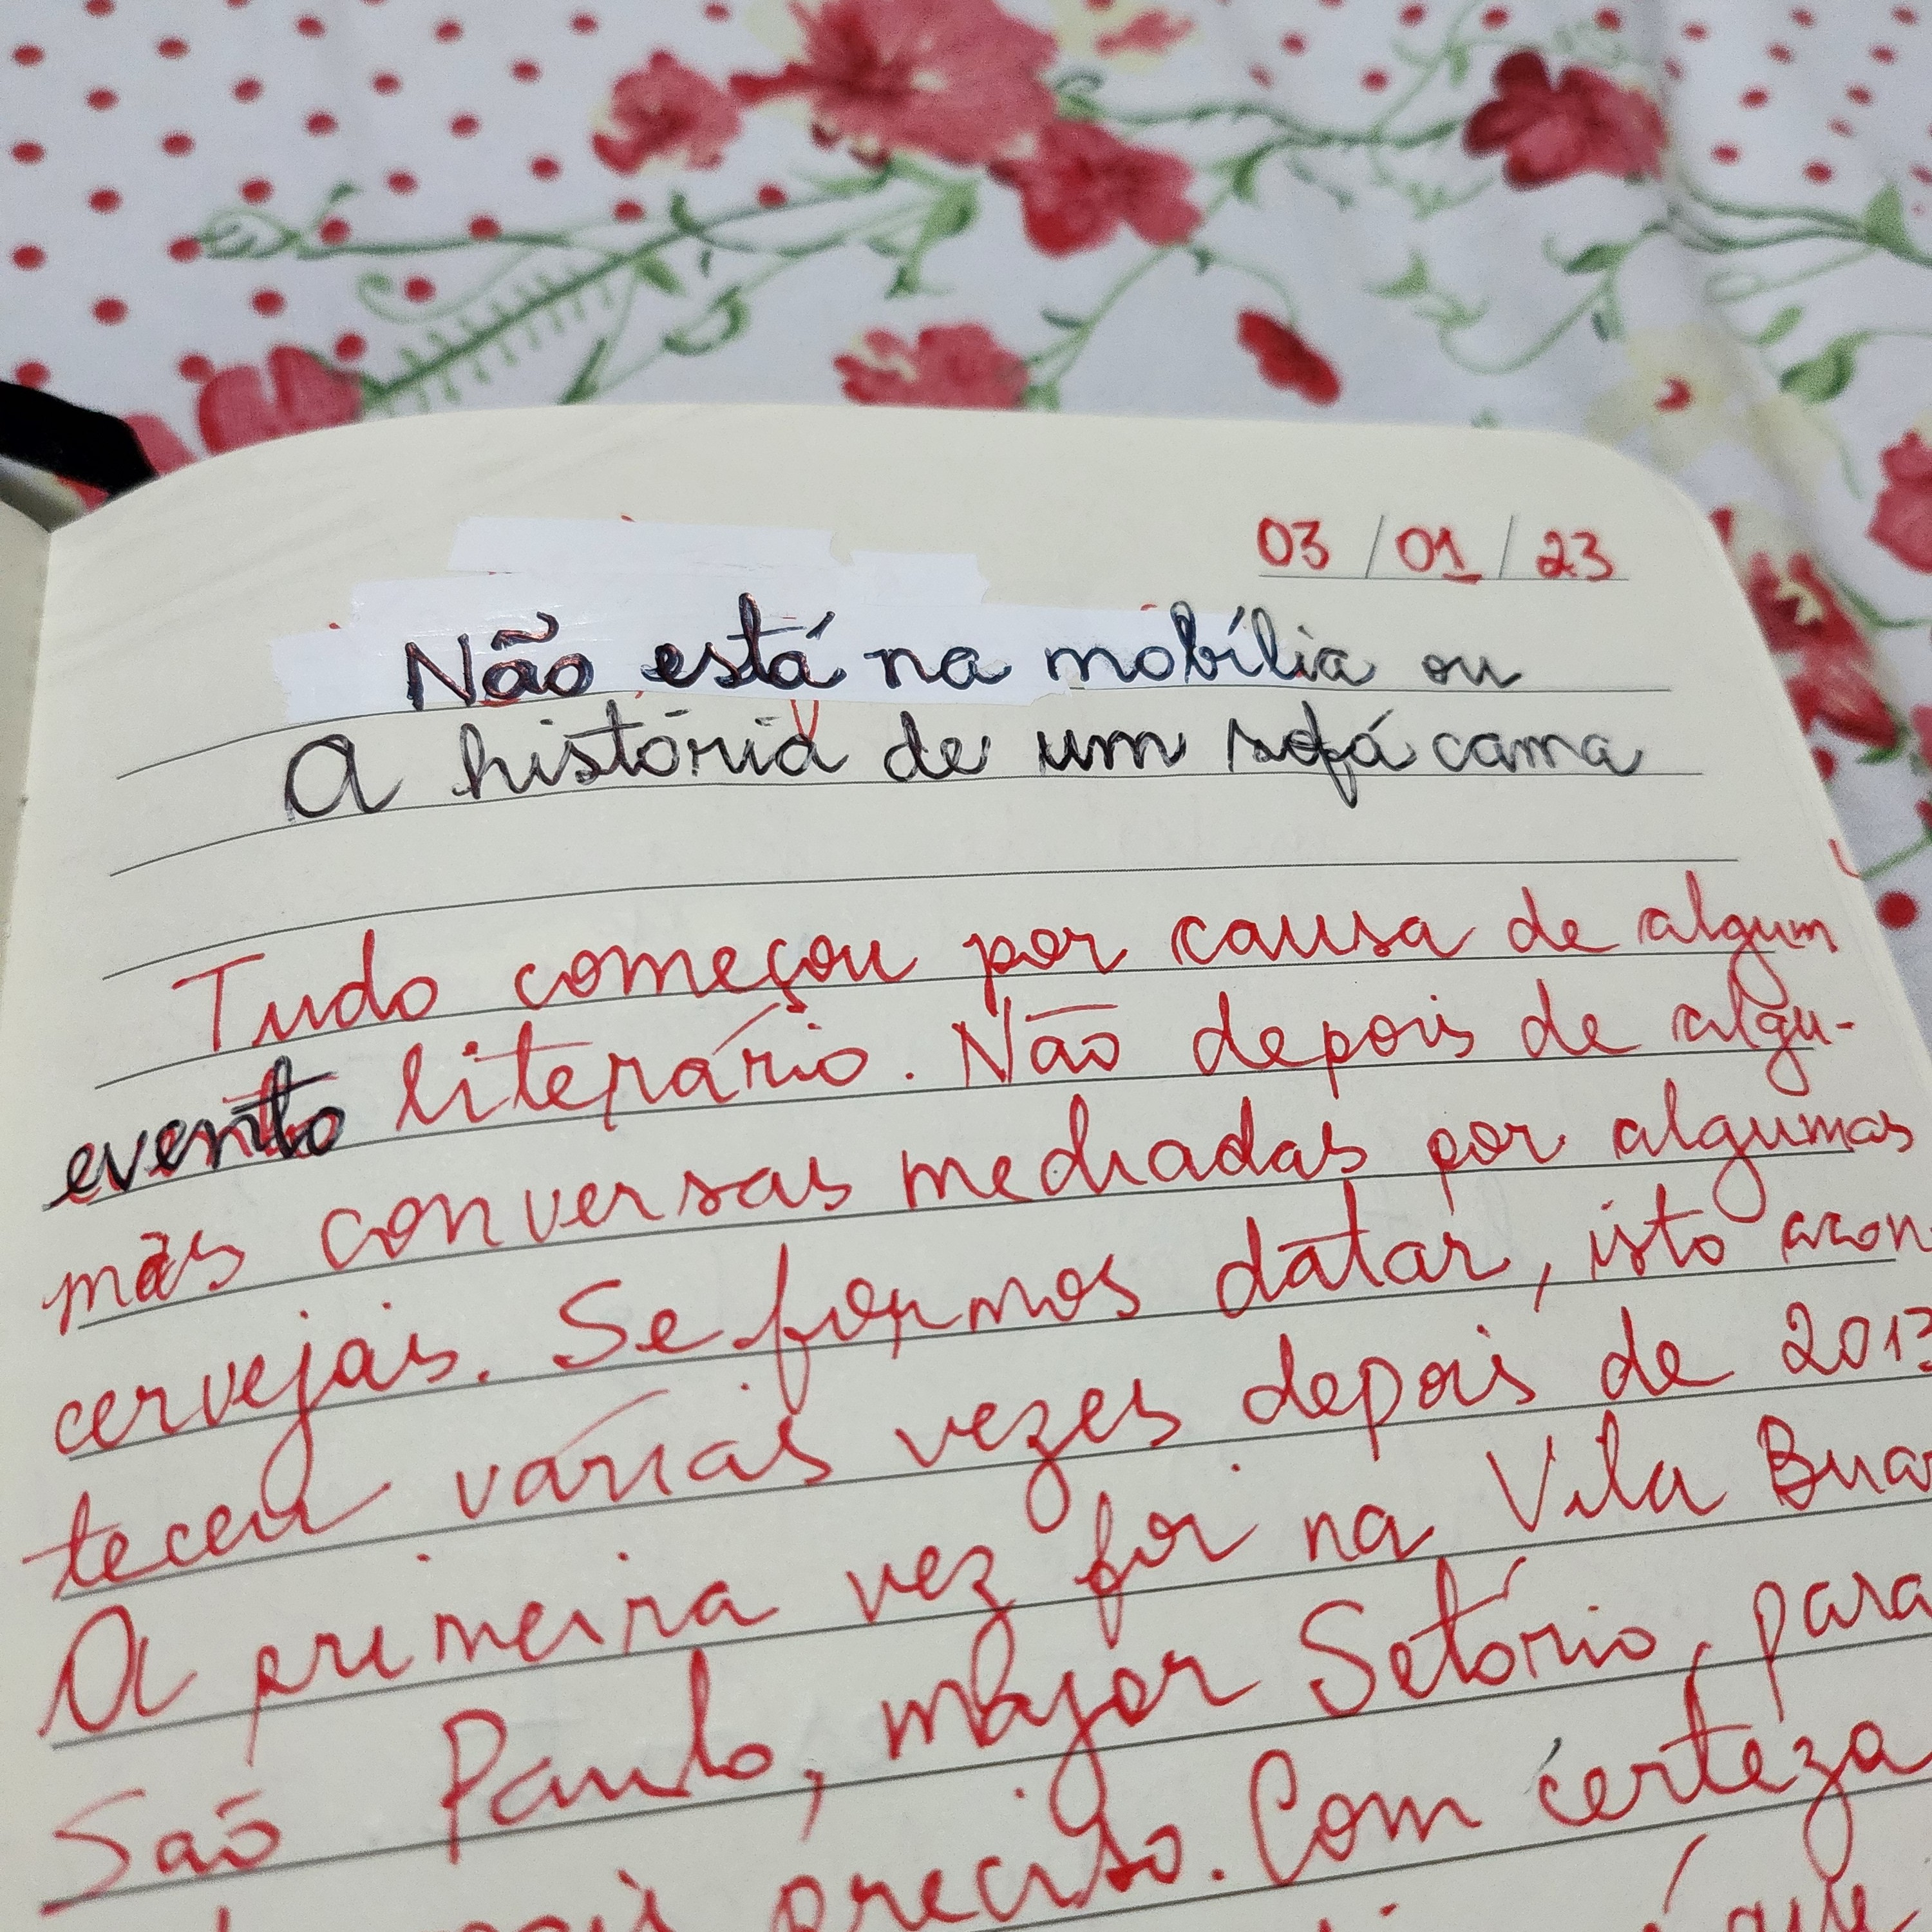 03/01/23
Não está na mobília ou
A história de um sofá cama
Tudo começou por causa de algum
evento literário. Não depois de algu-
mas conversas mediadas por algumas
cervejas. Se formos datar, isto acon
teceu várias vezes depois de 2013
A primeira vez foi na Vila Buar
São Paulo, major Setório, para
preciso. Com certeza